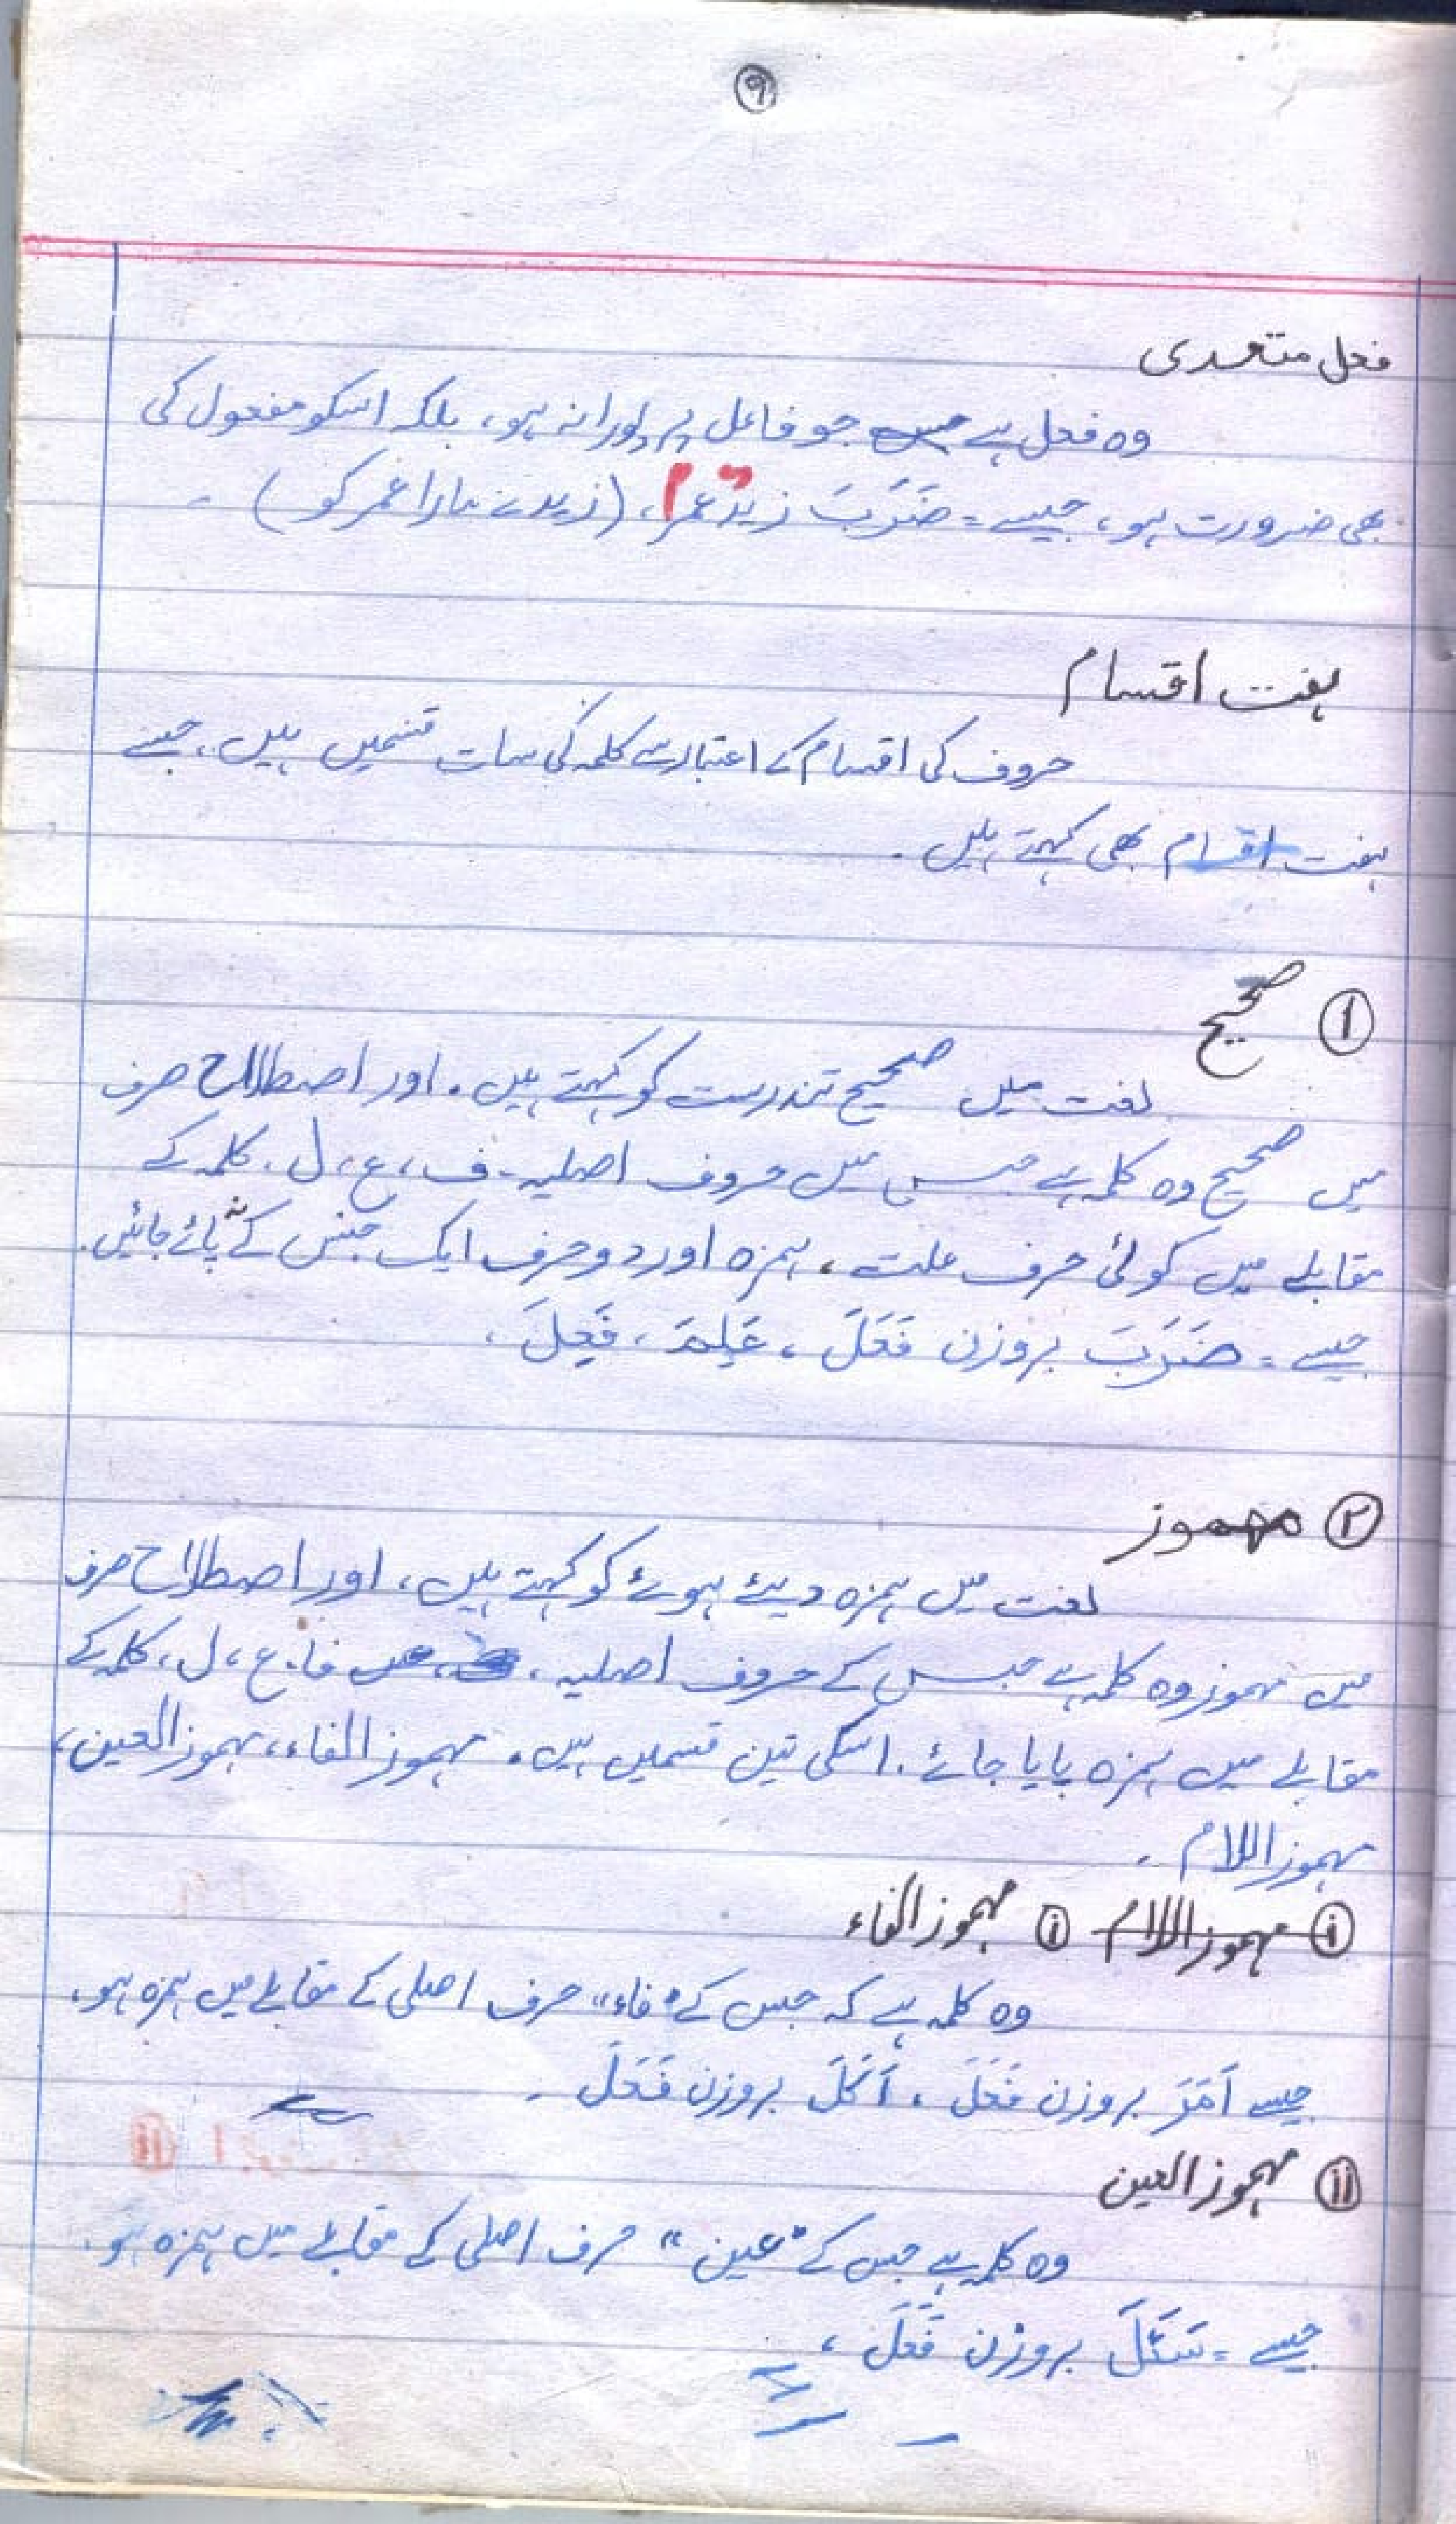 ۹
فعل متعدی
وہ فعل ہے جو فاعل پر پورا نہ ہو، بلکہ اسکو مفعول کی
بھی ضرورت ہو، جیسے = ضَرَبَ زیدٌ عمراً، (زید نے مارا عمر کو) ۔
ہفت اقسام
حروف کی اقسام کے اعتبار سے کلمہ کی سات قسمیں ہیں، جسے
ہفت اقسام بھی کہتے ہیں ۔
① صحیح
لغت میں صحیح تندرست کو کہتے ہیں ۔ اور اصطلاح صرف
میں صحیح وہ کلمہ ہے جس میں حروف اصلیہ ۔ ف، ع، ل ۔ کلمہ کے
مقابلے میں کوئی حرف علت، ہمزہ اور دو حرف ایک جنس کے نہ پائے جائیں ۔
جیسے = ضَرَبَ بروزن فَعَلَ ، عَلِمَ ، فَعِلَ ،
② مہموز
لغت میں ہمزہ دیئے ہوئے کو کہتے ہیں، اور اصطلاح صرف
میں مہموز وہ کلمہ ہے جس کے حروف اصلیہ ، فا، ع، ل، کلمہ کے
مقابلے میں ہمزہ پایا جائے ۔ اسکی تین قسمیں ہیں ۔ مہموز الفاء، مہموز العین،
مہموز اللام ۔
ⓘ مہموز اللام ⓘ مہموز الفاء
وہ کلمہ ہے کہ جس کے "فاء" حرف اصلی کے مقابلے میں ہمزہ ہو،
جیسے اَمَرَ بروزن فَعَلَ ، اَکَلَ بروزن فَعَلَ ۔
ⓘⓘ مہموز العین
وہ کلمہ ہے جس کے "عین" حرف اصلی کے مقابلے میں ہمزہ ہو ۔
جیسے = سَئَلَ بروزن فَعَلَ ،